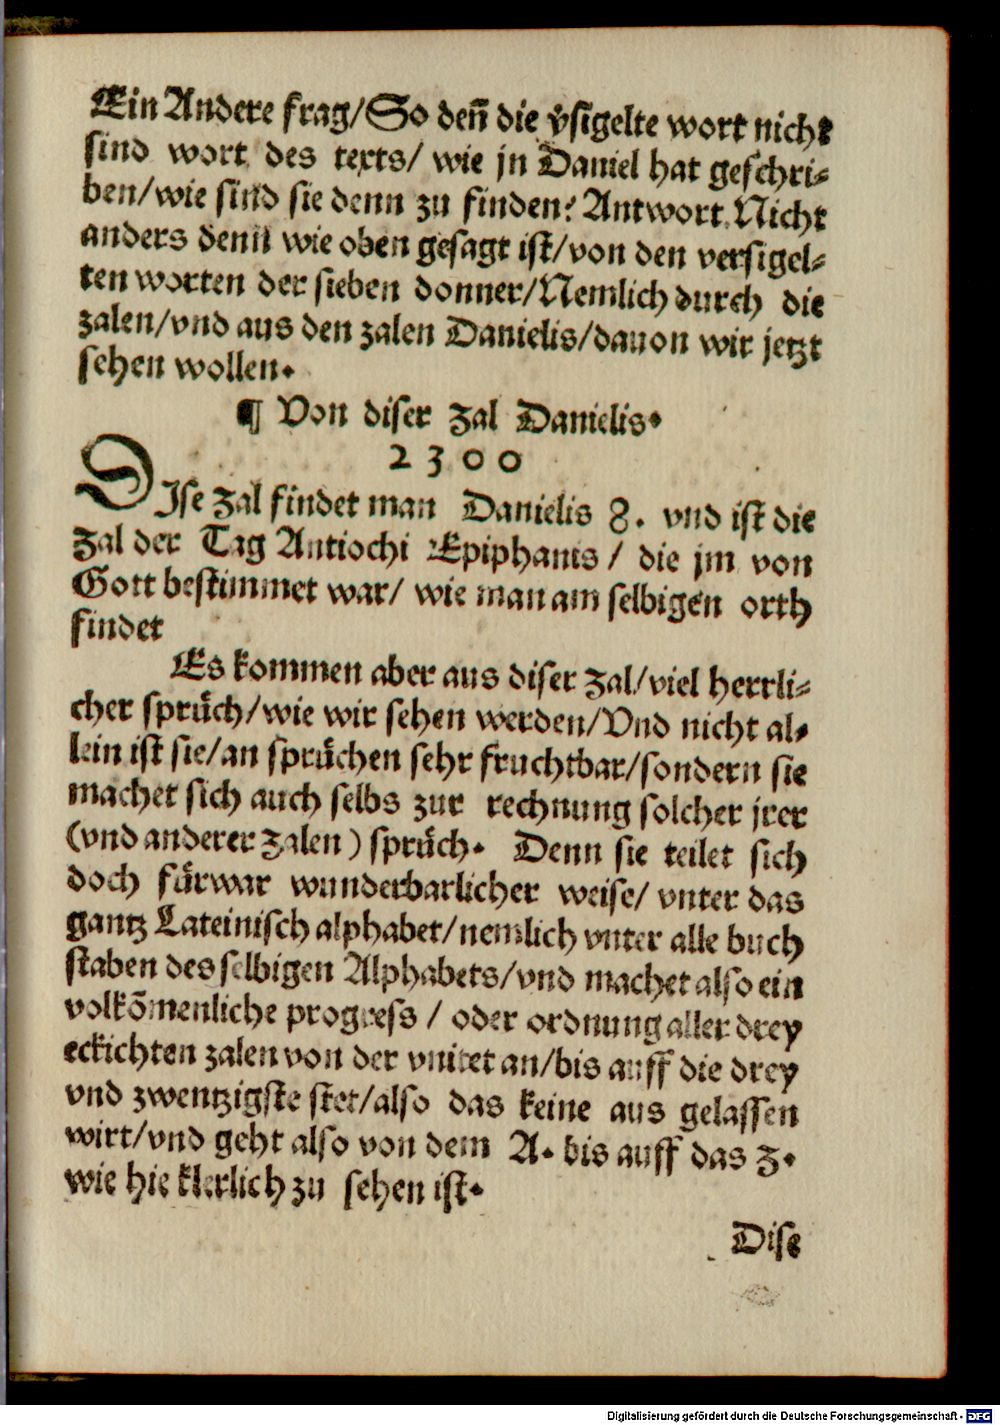 Ein Andere frag/So deñ die v̈sigelte wort nicht
sind wort des texts/ wie jn Daniel hat geschri-
ben/wie sind sie denn zu finden? Antwort, Nicht
anders denn wie oben gesagt ist/von den versigel-
ten worten der sieben donner/Nemlich durch die
zalen/vnd aus den zalen Danielis/dauon wir jetzt
sehen wollen.
¶ Von diser zal Danielis.
2300
DIse zal findet man Danielis 8. vnd ist die
zal der Tag Antiochi Epiphanis/ die jm von
Gott bestimmet war/ wie man am selbigen orth
findet
Es kommen aber aus diser zal/viel herrli-
cher sprüch/wie wir sehen werden/Vnd nicht al-
lein ist sie/an sprüchen sehr fruchtbar/sondern sie
machet sich auch selbs zur rechnung solcher jrer
(vnd anderer zalen) sprüch. Denn sie teilet sich
doch fürwar wunderbarlicher weise/ vnter das
gantz Lateinisch alphabet/nemlich vnter alle buch
staben desselbigen Alphabets/vnd machet also ein
volkõmenliche progress / oder ordnung aller drey
eckichten zalen von der vnitet an/bis auff die drey
vnd zwentzigste stet/also das keine aus gelassen
wirt/vnd geht also von dem A. bis auff das z.
wie hie klerlich zu sehen ist.
Dise
Digitalisierung gefördert durch die Deutsche Forschungsgemeinschaft - DFG